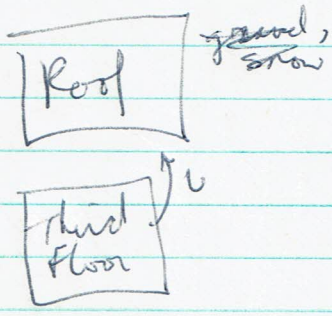 Roof
gravel,
snow
U
Third
Floor